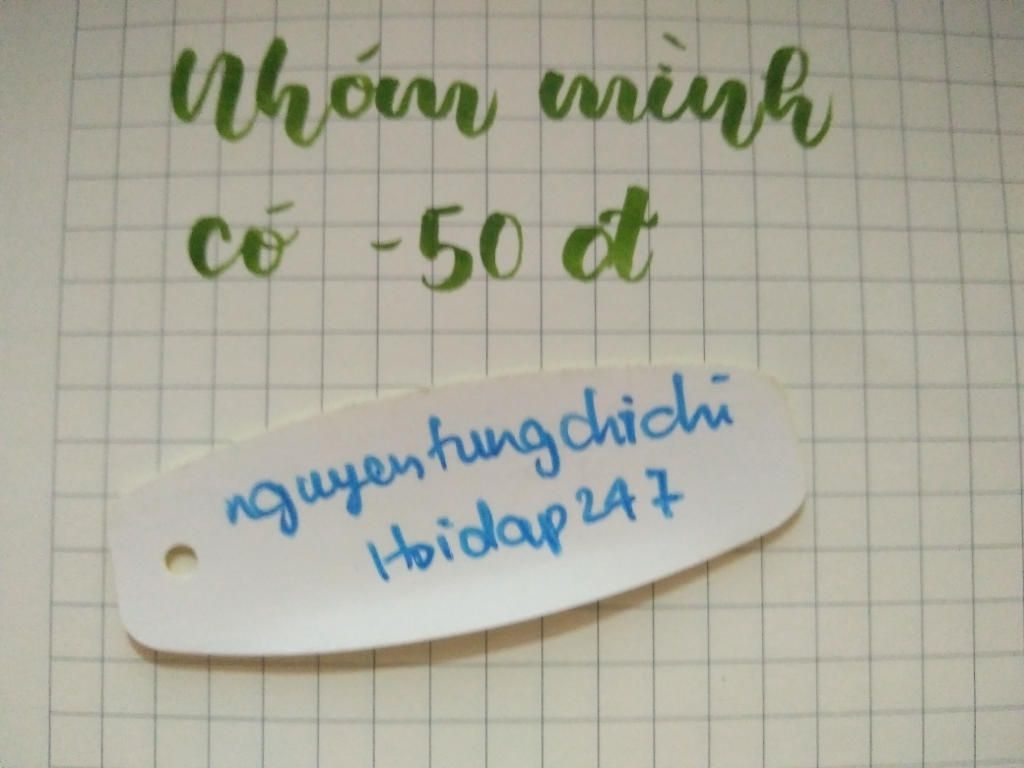 Nhóm mình
có -50 đt
nguyentungchichi
Hoidap247